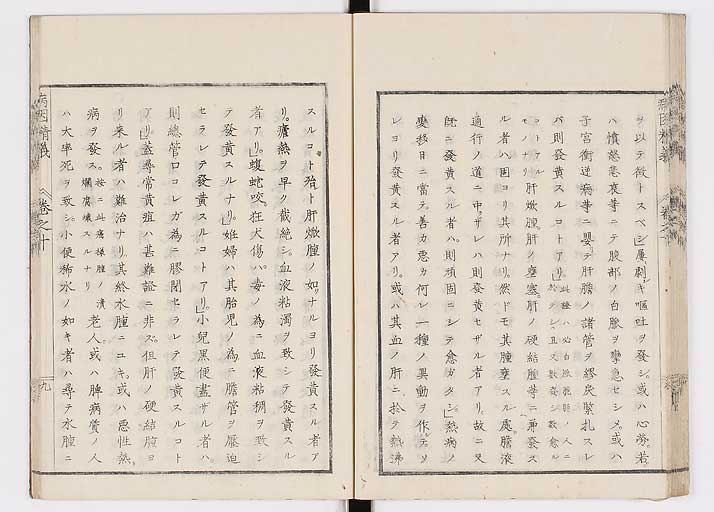 ヲ以テ徴トスベシ」屢劇キ嘔吐ヲ發シ。或ハ心勞。若
ハ憤怒悲哀等ニテ腹部ノ白脈ヲ攣急セシメ。或ハ
子宮衝逆病等ニ嬰テ肝膽ノ諸管ヲ繆戾緊扎スレ
バ則發黄スルコトアリ」
モノナリ 肝燉腫。肝ノ壅塞。肝ノ硬結腫等ニ兼發ス
ル者ハ固ヨリ其所ナリ。然ドモ其腫壅スル處。膽液
通行ノ道ニ中ザレハ則發黄セザル者アリ。故ニ又
既ニ發黄スル者ハ。則頑固ニシテ愈ガタシ」熱病ノ
變移日ニ當テ善カ悪カ何レ一種ノ異動ヲ作テソ
レヨリ發黄スル者アリ。或ハ其血ノ肝ニ於テ熱沸
病因精義 巻之十
スルコト殆ト肝燉腫ノ如ナルヨリ發黄スル者ア
リ。瘧熱ヲ早ク截絶シ。血液粘濁ヲ致シテ發黄スル
者アリ」蝮蛇咬。狂犬傷ハ毒ノ為ニ血液粘稠ヲ致シ
テ發黄スルナリ」妊婦ハ其胎児ノ為ニ膽管ヲ壓迫
セラレテ發黄スルコトアリ」小兒黒便盡ザル者ハ。
則總管口コレガ為ニ膠閉セラレテ發黄スルコト
アリ」蓋尋常黄疸ハ甚難證ニ非ズ。但肝ノ硬結腫ヨ
リ来ル者ハ難治ナリ。其終水腫ニユキ。或ハ悪性熱
病ヲ發ス。按ニ此處様腫ノ潰爛腐壊スルナリ 老人。或ハ脾病質ノ人
ハ大率死ヲ致シ。小便稀水ノ如キ者ハ尋テ水腫ニ
九